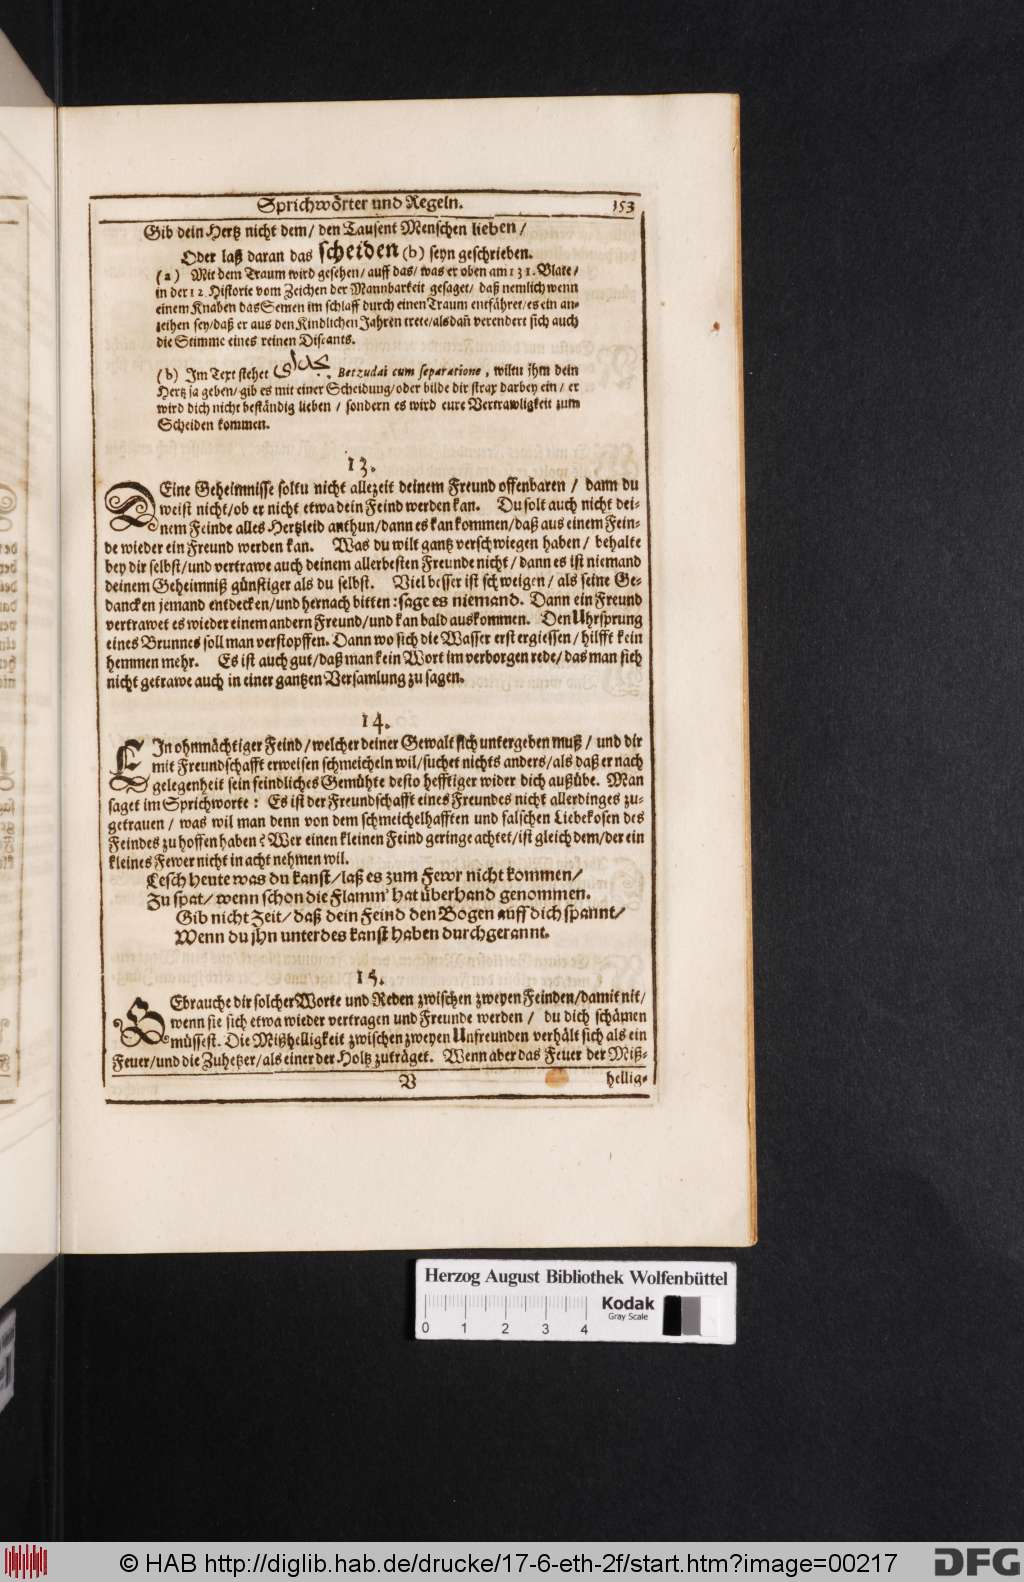 Sprichwörter und Regeln. 153
Gib dein Hertz nicht dem / den Tausent Menschen lieben /
Oder laß daran das scheiden (b) seyn geschrieben.
(a) Mit dem Traum wird gesehen / auff das / was er oben am 131. Blate /
in der 12. Historie vom Zeichen der Mannbarkeit gesaget / daß nemlich wenn
einem Knaben das Semen im schlaff durch einen Traum entfähret / es ein an-
zeihen sey / daß er aus den Kindlichen Jahren trete / als dañ verendert sich auch
die Stimme eines reinen Discants.
(b) Im Text stehet بجدای Betzudai cum separatione, wiltu jhm dein
Hertz ja geben / gib es mit einer Scheidung / oder bilde dir strax darbey ein / er
wird dich nicht beständig lieben / sondern es wird eure Vertrawligkeit zum
Scheiden kommen.
13.
DEine Geheimnisse soltu nicht allezeit deinem Freund offenbaren / dann du
weist nicht / ob er nicht etwa dein Feind werden kan. Du solt auch nicht dei-
nem Feinde alles Hertzleid anthun / dann es kan kommen / daß aus einem Fein-
de wieder ein Freund werden kan. Was du wilt gantz verschwiegen haben / behalte
bey dir selbst / und vertrawe auch deinem allerbesten Freunde nicht / dann es ist niemand
deinem Geheimniß günstiger als du selbst. Viel besser ist schweigen / als seine Ge-
dancken jemand entdecken / und hernach bitten: sage es niemand. Dann ein Freund
vertrawet es wieder einem andern Freund / und kan bald auskommen. Den Uhrsprung
eines Brunnes soll man verstopffen. Dann wo sich die Wasser erst ergiessen / hilfft kein
hemmen mehr. Es ist auch gut / daß man kein Wort im verborgen rede / das man sich
nicht getrawe auch in einer gantzen Versamlung zu sagen.
14.
EIn ohnmächtiger Feind / welcher deiner Gewalt sich untergeben muß / und dir
mit Freundschafft erweisen schmeicheln wil / suchet nichts anders / als daß er nach
gelegenheit sein feindliches Gemühte desto hefftiger wider dich außübe. Man
saget im Sprichworte: Es ist der Freundschafft eines Freundes nicht allerdinges zu-
getrauen / was wil man denn von dem schmeichelhafften und falschen Liebekosen des
Feindes zu hoffen haben? Wer einen kleinen Feind geringe achtet / ist gleich dem / der ein
kleines Fewer nicht in acht nehmen wil.
Lesch heute was du kanst / laß es zum Fewr nicht kommen /
Zu spat / wenn schon die Flamm' hat überhand genommen.
Gib nicht Zeit / daß dein Feind den Bogen auff dich spannt /
Wenn du jhn unterdes kanst haben durchgerannt.
15.
GEbrauche dir solcher Worte und Reden zwischen zweyen Feinden / damit nit /
wenn sie sich etwa wieder vertragen und Freunde werden / du dich schämen
müssest. Die Mißhelligkeit zwischen zweyen Unfreunden verhält sich als ein
Feuer / und die Zuhetzer / als einer der Holtz zuträget. Wenn aber das Feuer der Miß-
V hellig-
Herzog August Bibliothek Wolfenbüttel
0 1 2 3 4
Kodak
Gray Scale
© HAB http://diglib.hab.de/drucke/17-6-eth-2f/start.htm?image=00217
DFG